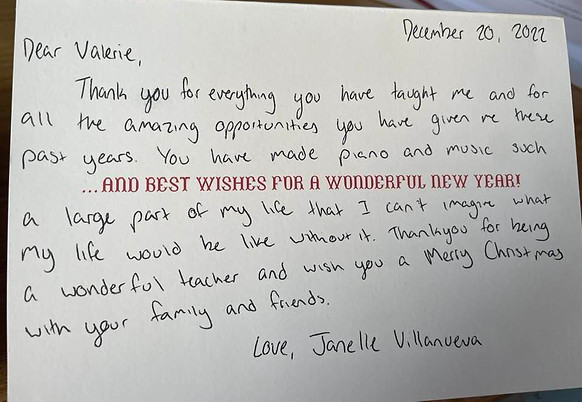 December 20, 2022
Dear Valerie,
Thank you for everything you have taught me and for
all the amazing opportunities you have given me these
past years. You have made piano and music such
...AND BEST WISHES FOR A WONDERFUL NEW YEAR!
a large part of my life that I can't imagine what
my life would be like without it. Thankyou for being
a wonderful teacher and wish you a Merry Christmas
with your family and friends.
Love, Janelle Villanueva